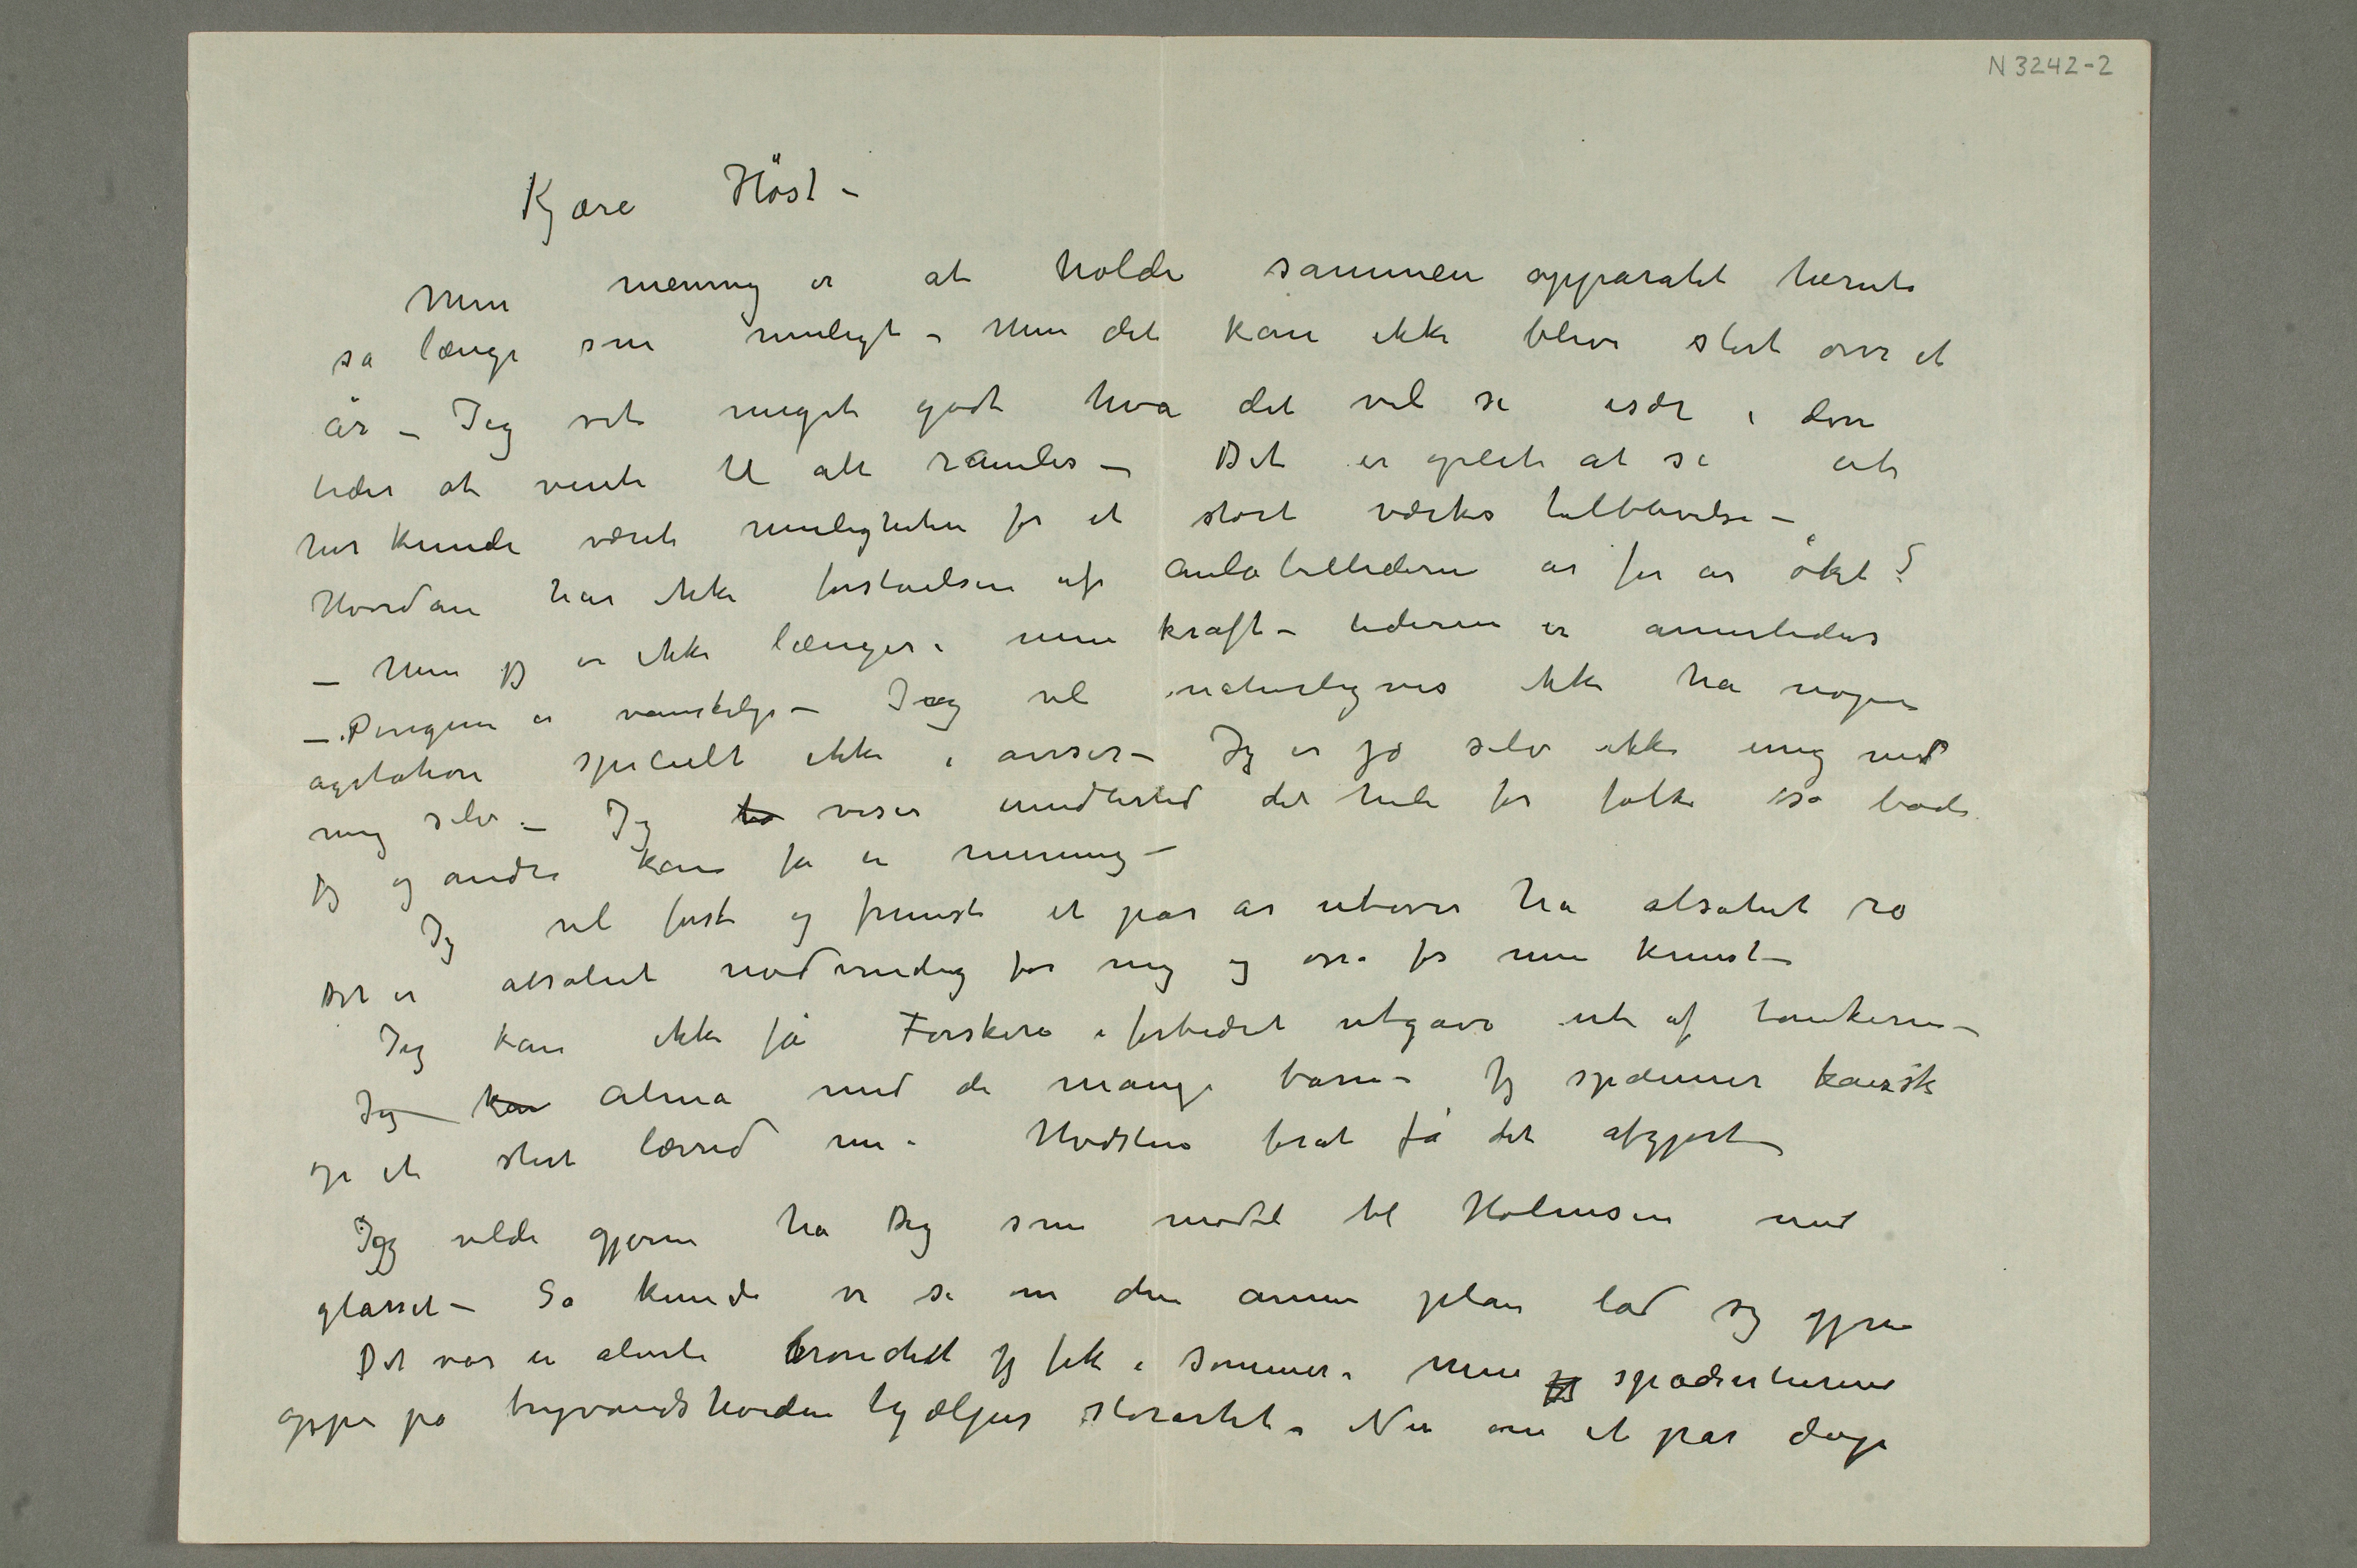 N 3242-2
Kjære Höst –
Min mening er at holde sammen apparatet herute
så længe som muligt – Men det kan ikke blive stort over et
år – Jeg vet meget godt hva det vil si især i disse
tider at vente til alt ramles – Det er greit at se at
her kunde været muligheten for et stort værks tilblivelse –
Hvordan har ikke forståelsen af Aulabillederne år for år øket?
– Men jeg er ikke længer i min kraft – tiderne er anerledes
– Pengene er vanskelige – Jeg vil naturligvis ikke ha nogen
agitation specielt ikke i aviser – Jeg er jo selv ikke enig med
mig selv – Jeg viser imidlertid det hele for folk så både
jeg og andre kan få en mening –
Jeg vil først og fremst et par år utover ha absolut ro
Det er absolut nødvendig for mig og også for min kunst –
Jeg kan ikke få Forskere i forbedret utgave ut af tankerne –
Jeg kan Alma med de mange barn – Jeg spænner kanske
op et stort lærred nu – Hvdsten bræt få det afgjort
Jeg vilde gjerne ha Dig som model til Holmsen med
glasset – Så kunde vi se om den annen plan lod sig gjøre
Det var en alvorlig bronchit jeg fik i sommer. Men jeg spadserturene
oppe på tryvandshøiden hjælper storartet. Nu om et par dage